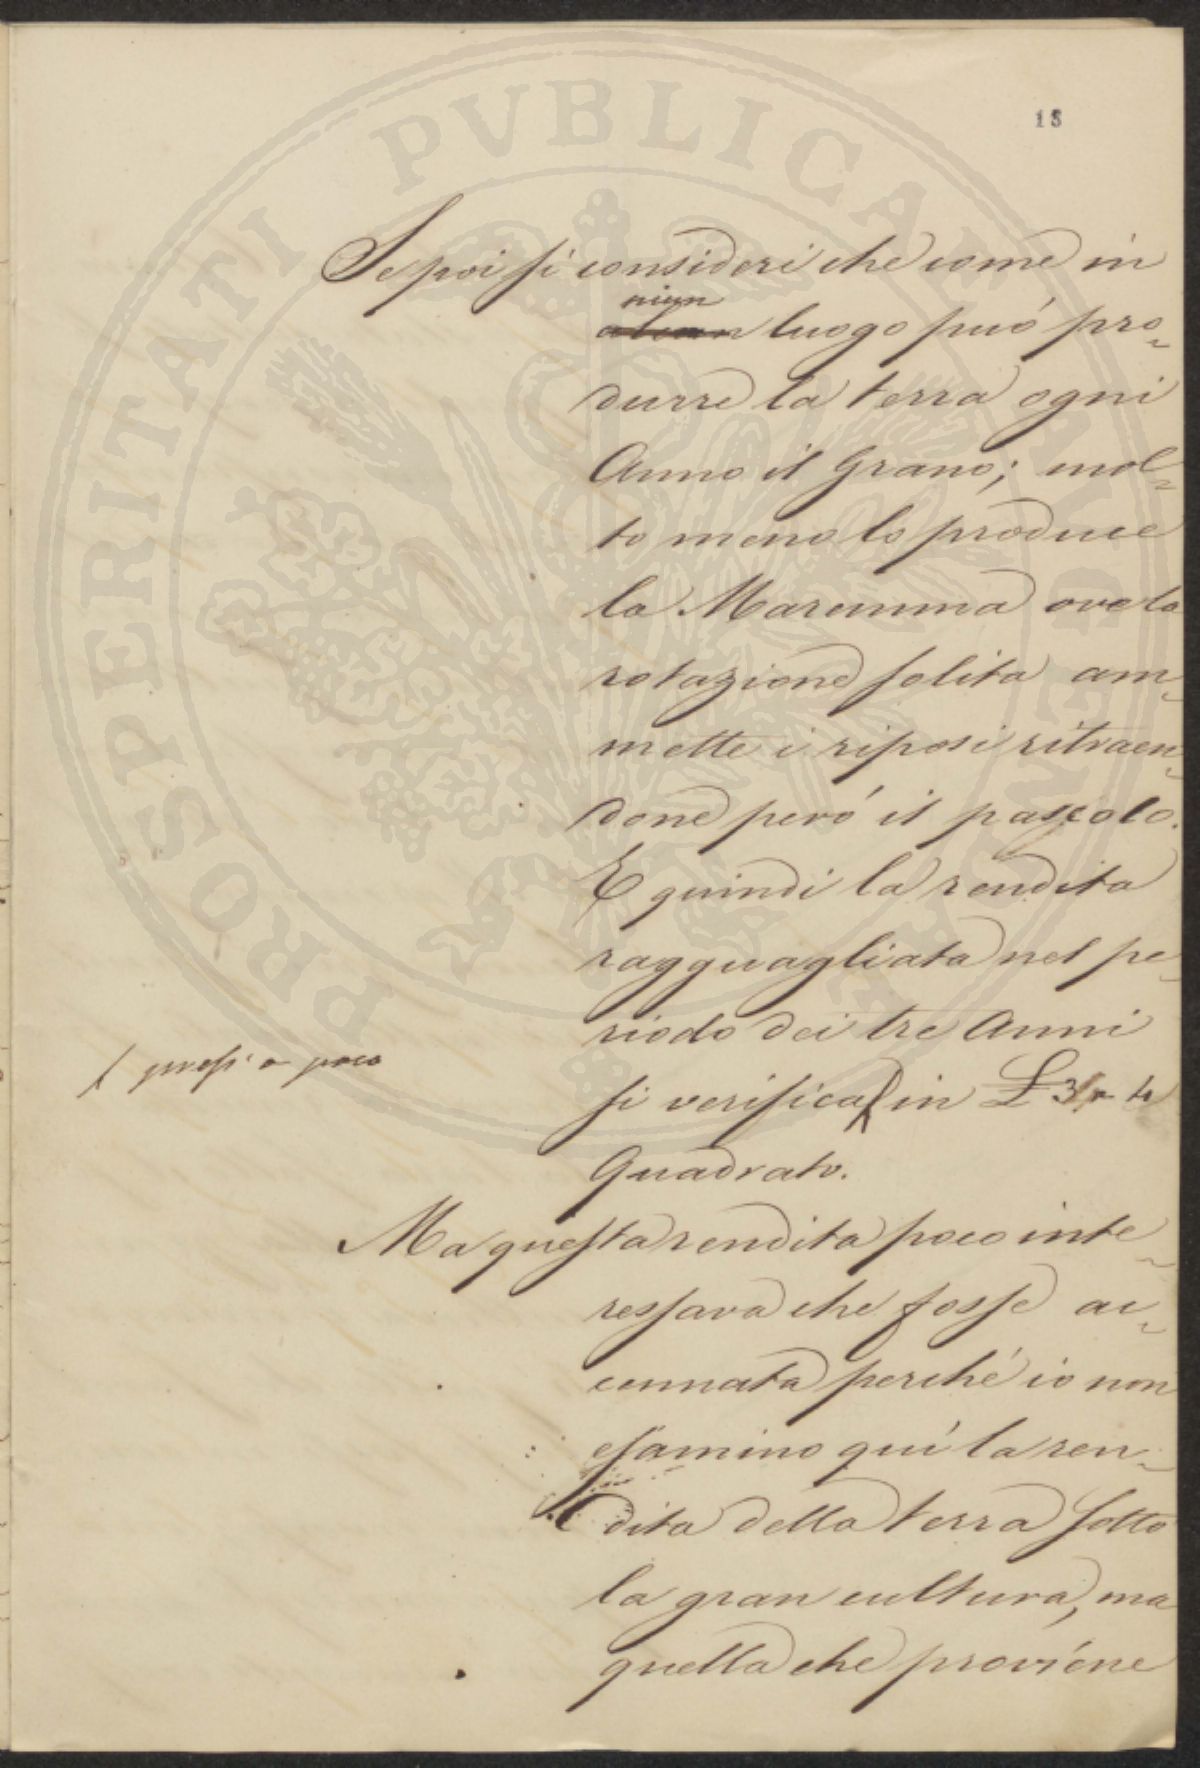 PROSPERITATI PVBLICAE AVGENDAE
18
Se poi si consideri che come in
niun
alcun luogo può pro-
durre la terra ogni
Anno il Grano; mol-
to meno lo produce
la Maremma ove la
rotazione solita am-
mette i riposi ritraen-
done però il pascolo.
E quindi la rendita
ragguagliata nel pe-
riodo dei tre Anni
pressi a poco
si verifica in £ 3 a 4
Quadrato.
Ma questa rendita poco inte-
ressava che fosse ac-
cennata perché io non
esamino quì la ren-
dita della terra sotto
la gran cultura, ma
quella che proviene